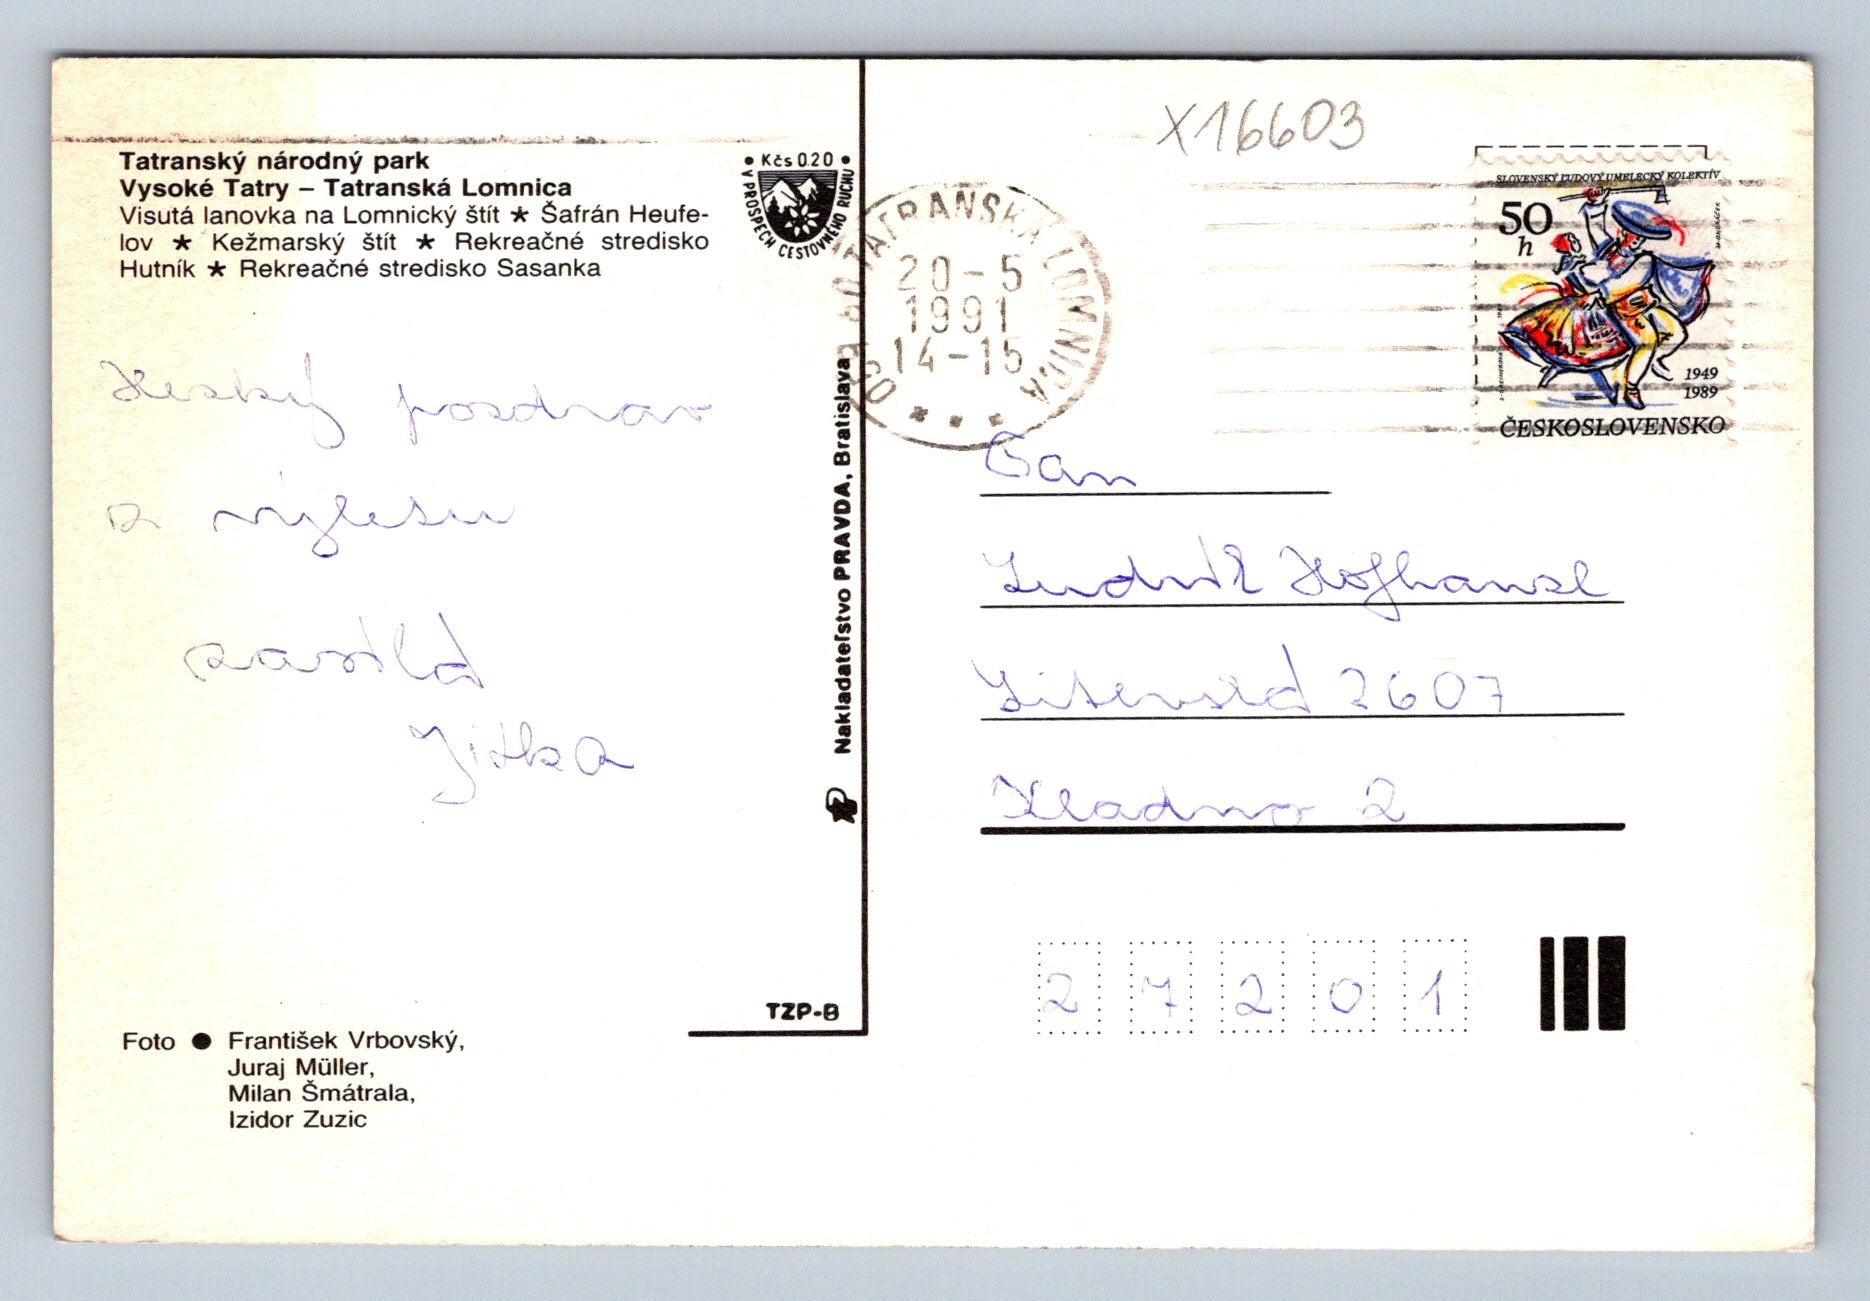 Tatranský národný park
Vysoké Tatry – Tatranská Lomnica
Visutá lanovka na Lomnický štít ★ Šafrán Heufe-
lov ★ Kežmarský štít ★ Rekreačné stredisko
Hutník ★ Rekreačné stredisko Sasanka
• Kčs 0.20 •
V PROSPECH CESTOVNÉHO RUCHU
Hezký pozdrav
z výletu
zasílá
Jitka
Foto ● František Vrbovský,
Juraj Müller,
Milan Šmátrala,
Izidor Zuzic
TZP-B
Nakladateľstvo PRAVDA, Bratislava
X16603
TATRANSKÁ LOMNICA
20-5
1991
14-15
SLOVENSKÝ ĽUDOVÝ UMELECKÝ KOLEKTÍV
50
h
1949
1989
ČESKOSLOVENSKO
Pan
Ludvík Hofhansl
2607
Kladno 2
27201